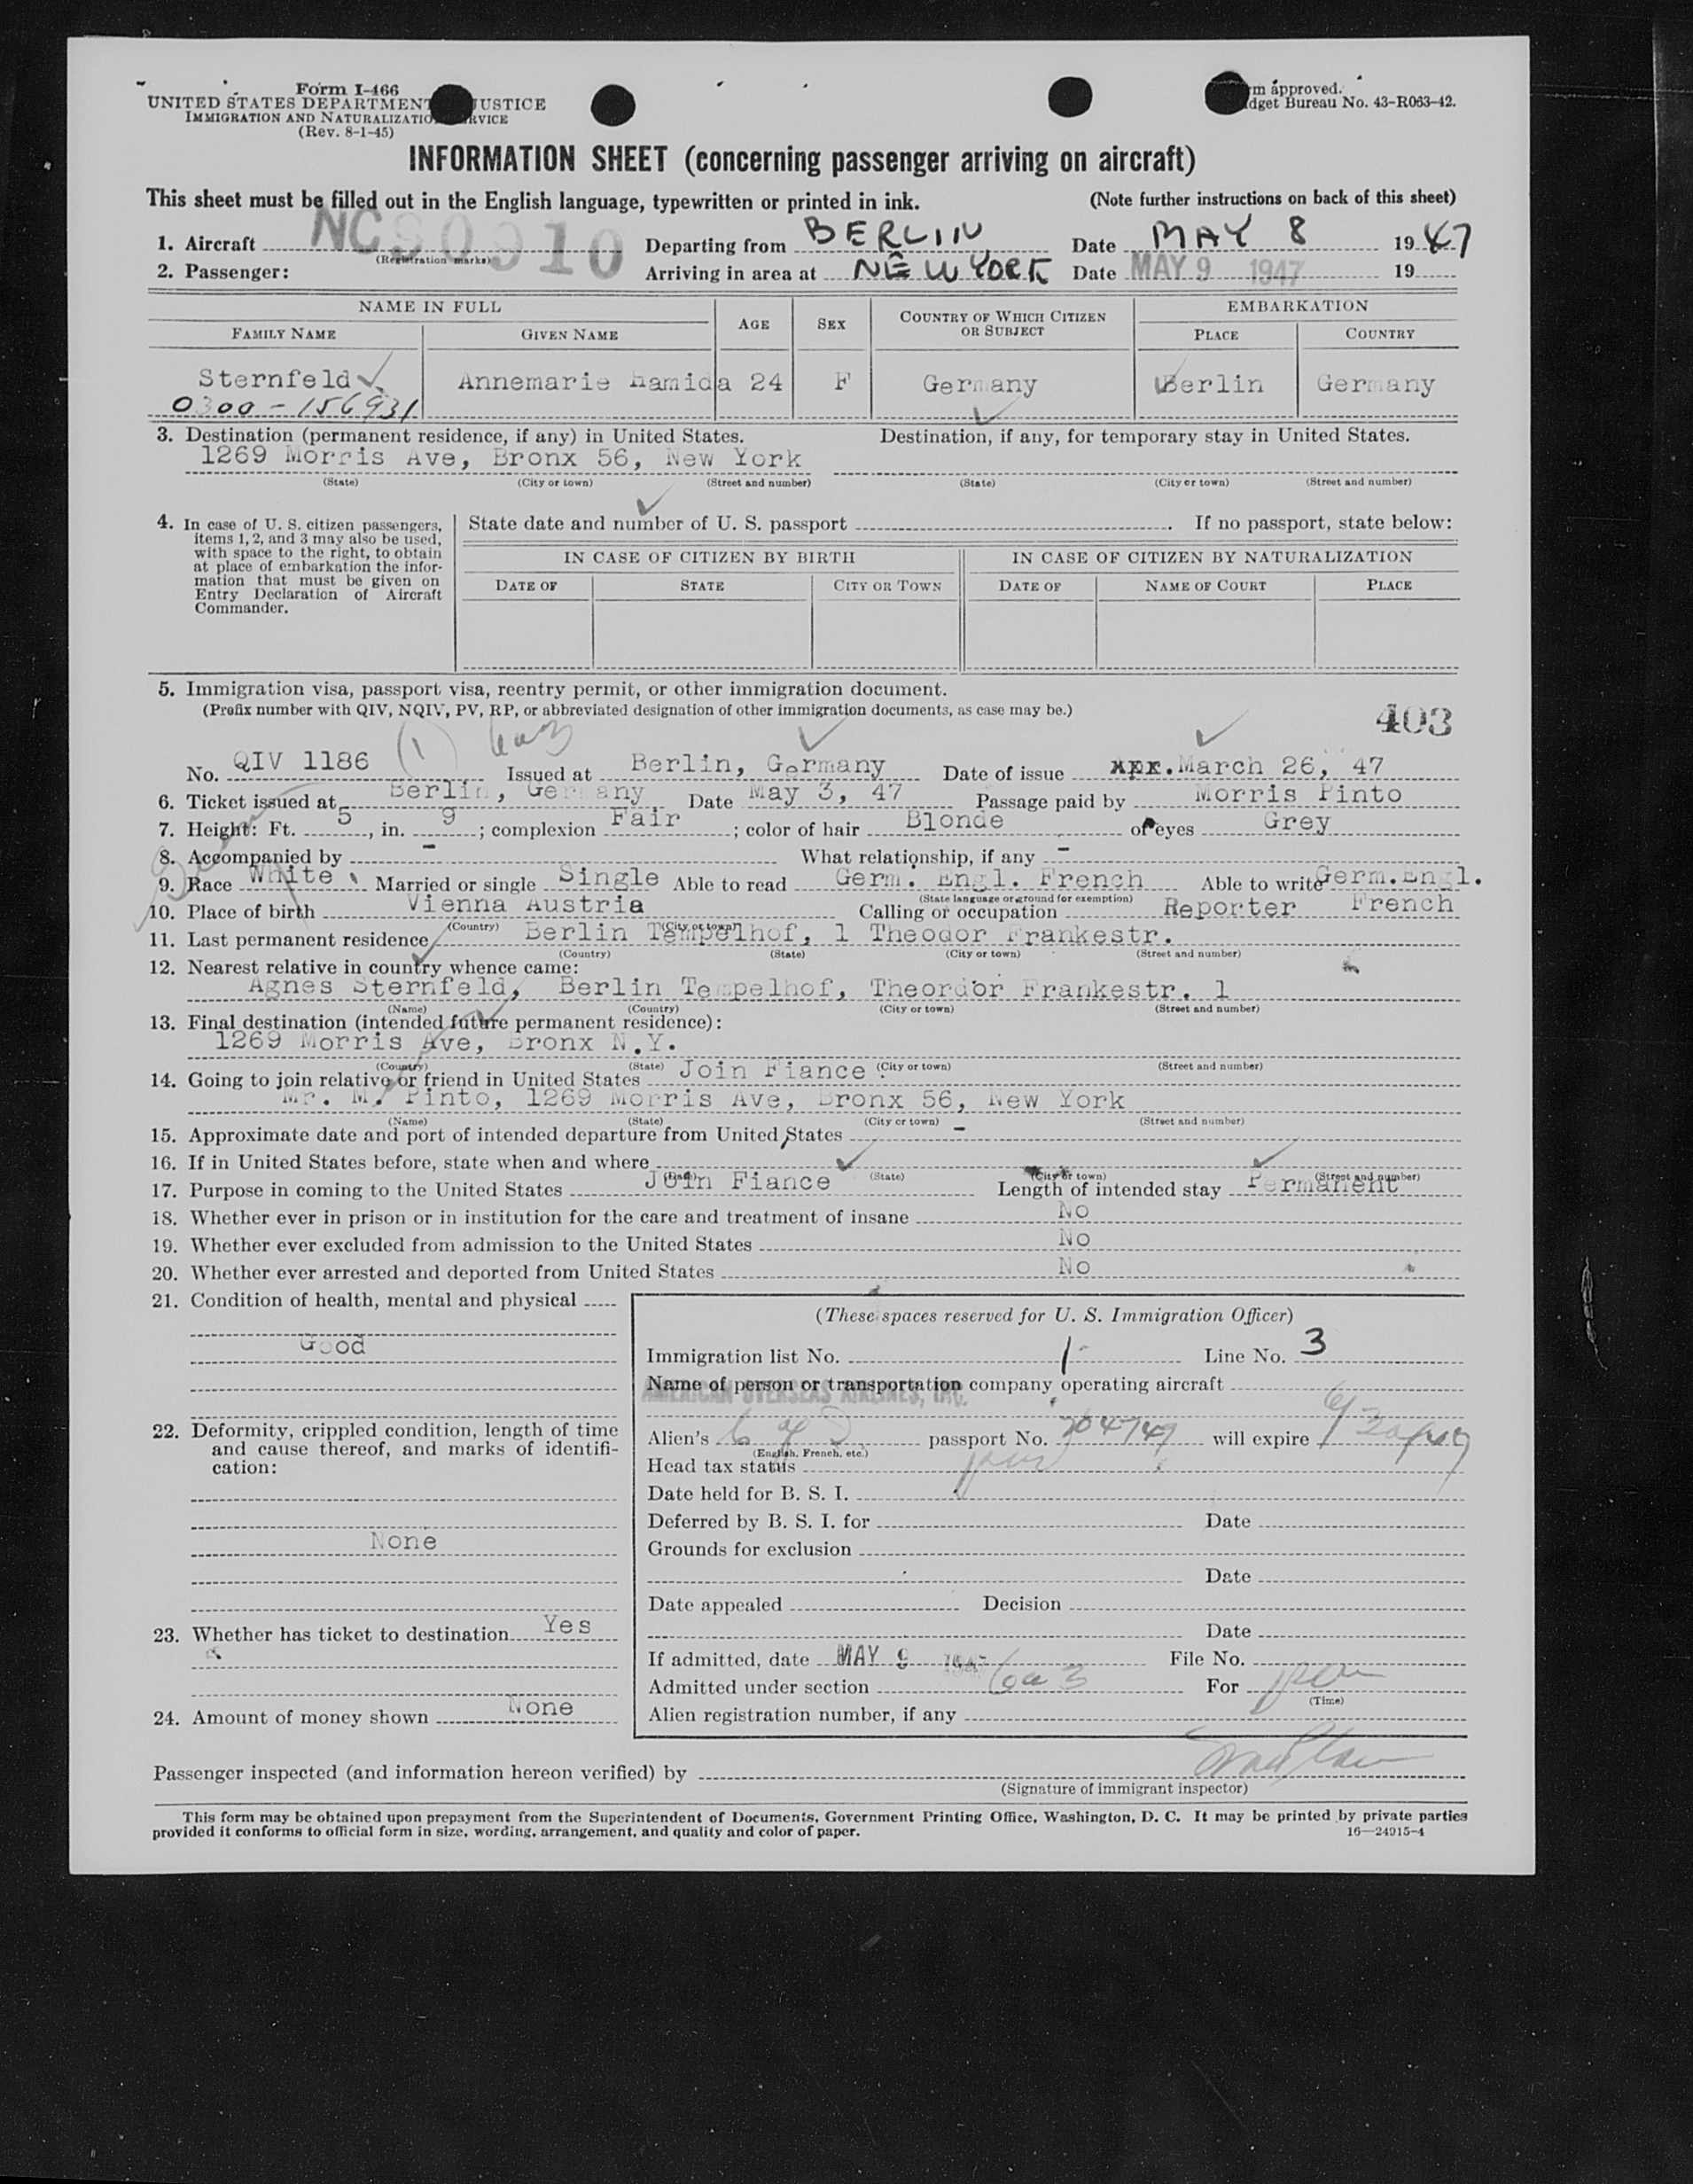 Form I-466
UNITED STATES DEPARTMENT JUSTICE
IMMIGRATION AND NATURALIZATIO RVICE
(Rev. 8-1-45)
m approved.
dget Bureau No. 43-R063-42.
INFORMATION SHEET (concerning passenger arriving on aircraft)
This sheet must be filled out in the English language, typewritten or printed in ink. (Note further instructions on back of this sheet)
1. Aircraft NC90910 Departing from BERLIN Date MAY 8 1947
(Registration marks)
2. Passenger: Arriving in area at NEW YORK Date MAY 9 1947 19
NAME IN FULL AGE SEX COUNTRY OF WHICH CITIZEN OR SUBJECT EMBARKATION
FAMILY NAME GIVEN NAME PLACE COUNTRY
Sternfeld Annemarie Hamida 24 F Germany Berlin Germany
0300-156931
3. Destination (permanent residence, if any) in United States. Destination, if any, for temporary stay in United States.
1269 Morris Ave, Bronx 56, New York
(State) (City or town) (Street and number) (State) (City or town) (Street and number)
4. In case of U. S. citizen passengers, items 1, 2, and 3 may also be used, with space to the right, to obtain at place of embarkation the information that must be given on Entry Declaration of Aircraft Commander.
State date and number of U. S. passport . If no passport, state below:
IN CASE OF CITIZEN BY BIRTH IN CASE OF CITIZEN BY NATURALIZATION
DATE OF STATE CITY OR TOWN DATE OF NAME OF COURT PLACE
5. Immigration visa, passport visa, reentry permit, or other immigration document.
(Prefix number with QIV, NQIV, PV, RP, or abbreviated designation of other immigration documents, as case may be.)
403
(1) 6a3
No. QIV 1186 Issued at Berlin, Germany Date of issue Apr. March 26, 47
6. Ticket issued at Berlin, Germany Date May 3, 47 Passage paid by Morris Pinto
7. Height: Ft. 5, in. 9; complexion Fair; color of hair Blonde of eyes Grey
8. Accompanied by - What relationship, if any -
9. Race White Married or single Single Able to read Germ. Engl. French Able to write Germ. Engl.
(State language or ground for exemption)
10. Place of birth Vienna Austria Calling or occupation Reporter French
(Country) (City or town)
11. Last permanent residence Berlin Tempelhof, 1 Theodor Frankestr.
(Country) (State) (City or town) (Street and number)
12. Nearest relative in country whence came:
Agnes Sternfeld, Berlin Tempelhof, Theordor Frankestr. 1
(Name) (Country) (City or town) (Street and number)
13. Final destination (intended future permanent residence):
1269 Morris Ave, Bronx N.Y.
(Country) (State) (City or town) (Street and number)
14. Going to join relative or friend in United States Join Fiance :
Mr. M. Pinto, 1269 Morris Ave, Bronx 56, New York
(Name) (State) (City or town) (Street and number)
15. Approximate date and port of intended departure from United States -
16. If in United States before, state when and where
(Date) (State) (City or town) (Street and number)
17. Purpose in coming to the United States Join Fiance Length of intended stay Permanent
18. Whether ever in prison or in institution for the care and treatment of insane No
19. Whether ever excluded from admission to the United States No
20. Whether ever arrested and deported from United States No
21. Condition of health, mental and physical
Good
22. Deformity, crippled condition, length of time and cause thereof, and marks of identification:
None
23. Whether has ticket to destination Yes
24. Amount of money shown None
(These spaces reserved for U. S. Immigration Officer)
Immigration list No. 1 Line No. 3
Name of person or transportation company operating aircraft
AMERICAN OVERSEAS AIRLINES, INC.
Alien's passport No. 204749 will expire
(English, French, etc.)
Head tax status
Date held for B. S. I.
Deferred by B. S. I. for Date
Grounds for exclusion
Date
Date appealed Decision
Date
If admitted, date MAY 9 1947 File No.
Admitted under section 6a3 For per
(Time)
Alien registration number, if any
Passenger inspected (and information hereon verified) by
(Signature of immigrant inspector)
This form may be obtained upon prepayment from the Superintendent of Documents, Government Printing Office, Washington, D. C. It may be printed by private parties
provided it conforms to official form in size, wording, arrangement, and quality and color of paper. 16—24915-4